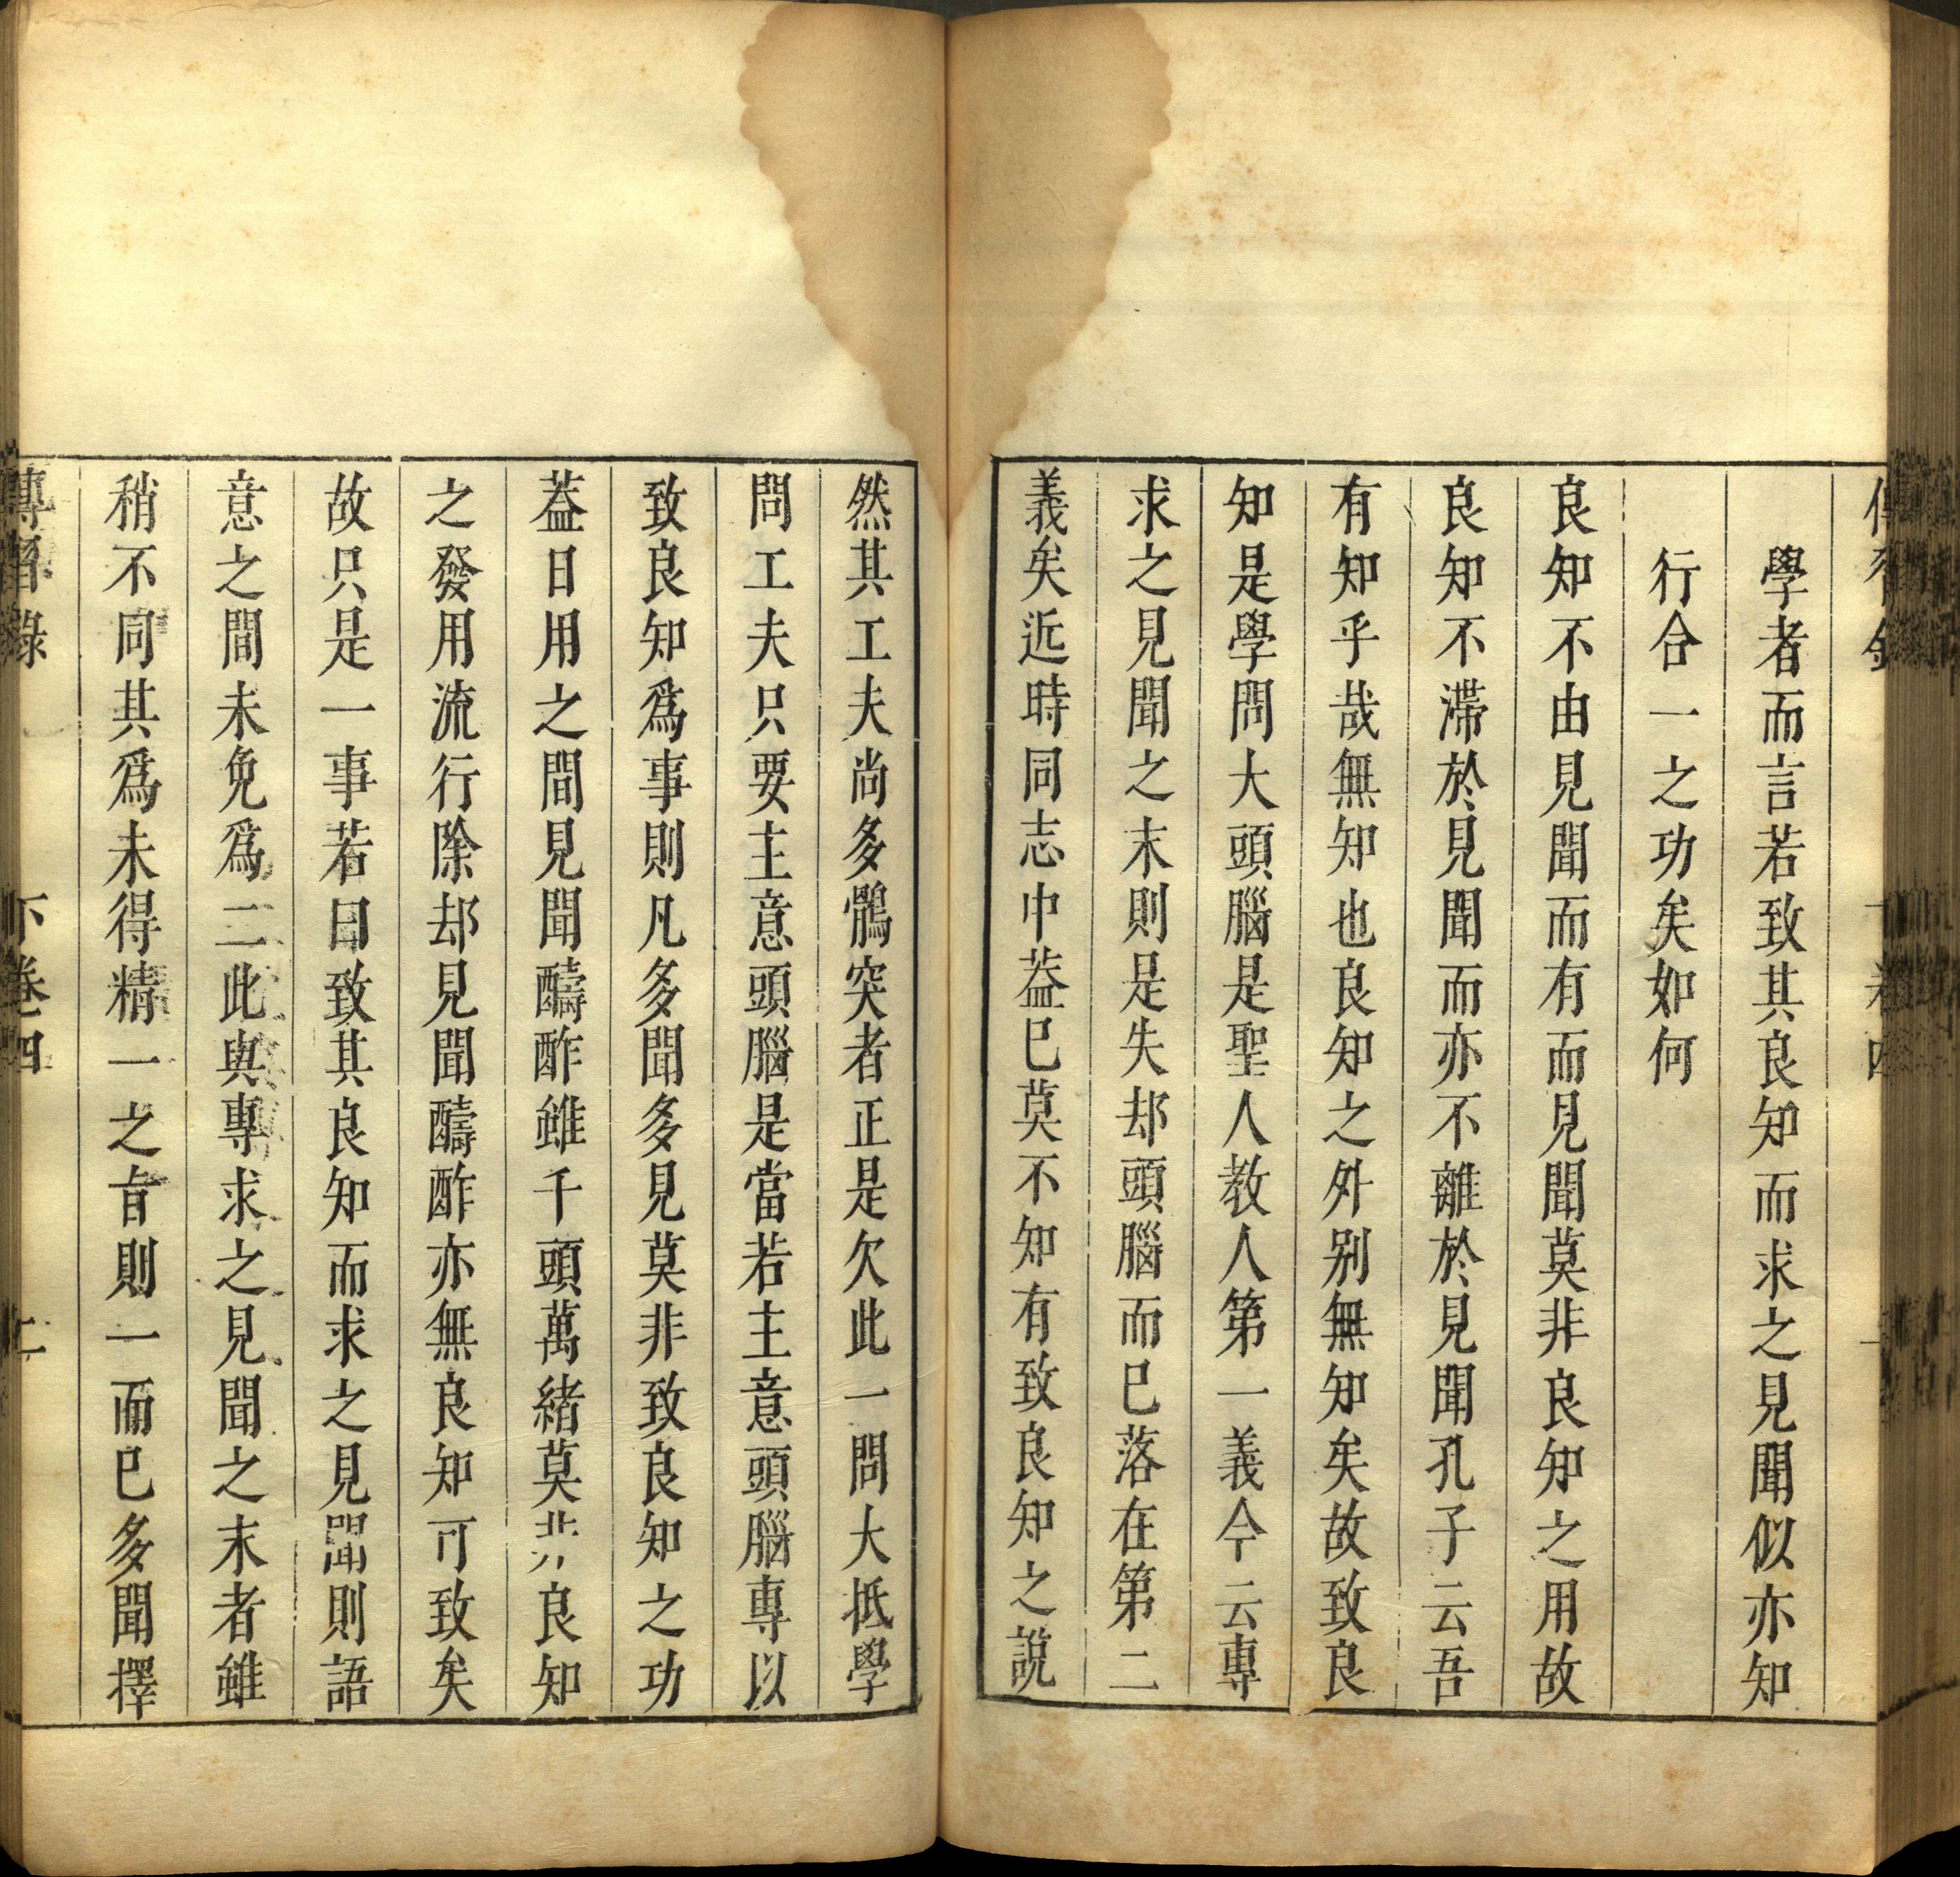 學者而言若致其良知而求之見聞似亦知
行合一之功矣如何
良知不由見聞而有而見聞莫非良知之用故
良知不滯於見聞而亦不離於見聞孔子云吾
有知乎哉無知也良知之外別無知矣故致良
知是學問大頭腦是聖人教人第一義今云專
求之見聞之末則是失却頭腦而巳落在第二
義矣近時同志中葢巳莫不知有致良知之說
然其工夫尚多鶻突者正是欠此一問大抵學
問工夫只要主意頭腦是當若主意頭腦專以
致良知爲事則凡多聞多見莫非致良知之功
葢日用之間見聞醻酢雖千頭萬緒莫非良知
之發用流行除却見聞醻酢亦無良知可致矣
故只是一事若曰致其良知而求之見聞則語
意之間未免爲二此與專求之見聞之末者雖
稍不同其爲未得精一之旨則一而巳多聞擇
傳習錄 下卷四 二